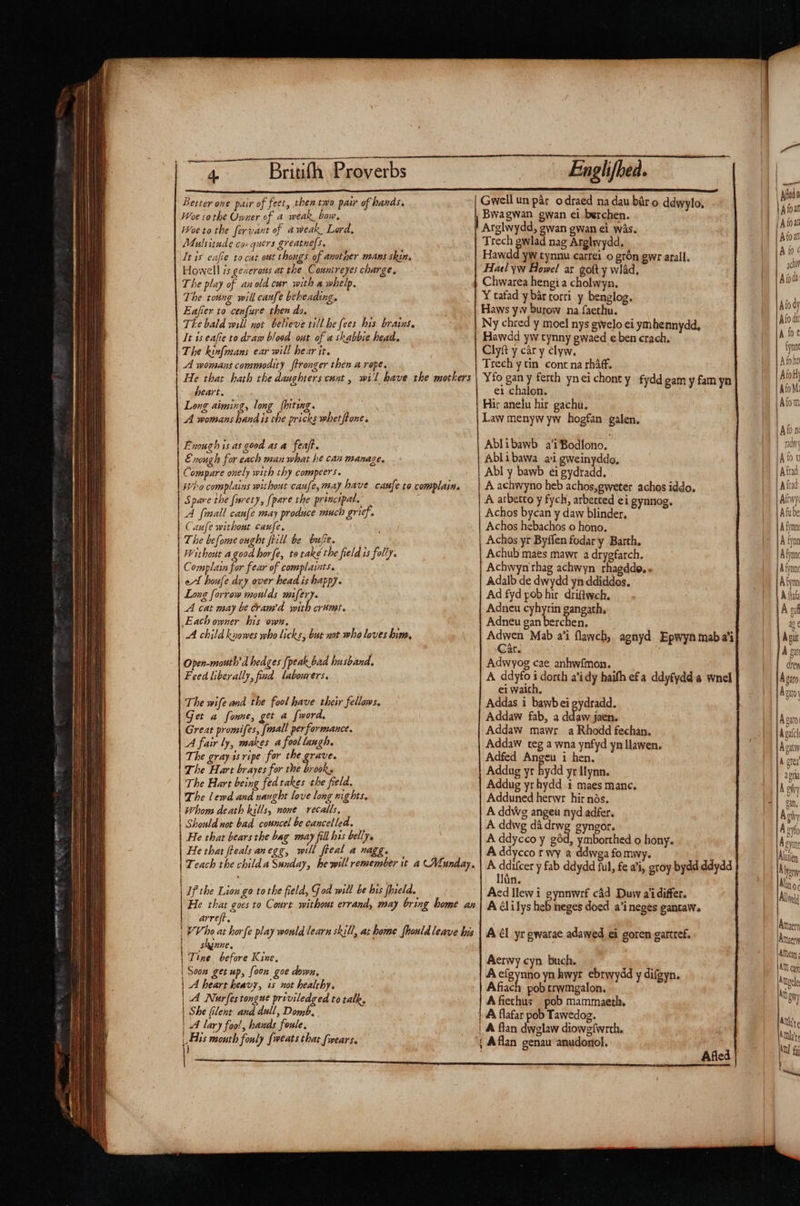 4 Britiſh Proverbs
Better one pair of feet, then two pair of hands.
Woe to the Owner of a weak bow.
Woe to the ſervant of a weak Lord.
Multitude conquers greatneſs.
It is eaſie to cut out thongs of another mans skin.
Howell is generous at the Countreyes charge.
The play of an old cur with a whelp.
The toung will cauſe beheading.
Eaſier to cenſure then do.
The bald will not believe till he ſees his brains.
It is eaſie to draw blood out of a skabbie head.
The kinſmans ear will hear it.
A womans commodity ſtronger then a rope.
He that hath the daughters cunt, will have the mothers
heart.
Long aiming, long ſhiting.
A womans hand is the pricks whetſtone.
Enough is as good as a feaſt.
Enough for each man what he can manage.
Compare onely with thy compeers.
Who complains without cauſe, may have cauſe to complain.
Spare the ſurety, ſpare the principal.
A ſmall cauſe may produce much grief.
Cauſe without cauſe.
The beſome ought ſtill be buſie.
Without a good horſe, to take the field is folly.
Complain for fear of complaints.
A houſe dry over head is happy.
Long ſorrow moulds miſery.
A cat may be cram'd with crums.
Each owner his own.
A child knowes who licks, but not who loves him.
Open-mouth'd hedges ſpeak bad husband.
Feed liberally, find labourers.
The wife and the fool have their fellows.
Get a ſonne, get a ſword.
Great promiſes, ſmall performance.
A fair ly, makes a fool laugh.
The gray is ripe for the grave.
The Hart brayes for the brook.
The Hart being fed takes the field.
The lewd and naught love long nights.
Whom death kills, none recalls.
Should not bad councel be cancelled.
He that bears the bag may fill his belly.
He that ſteals an egg, will ſteal a nagg.
Teach the child a Sunday, he will remember it a Munday.
If the Lion go to the field, God will be his ſhield.
He that goes to Court without errand, may bring home an
arreſt.
VVho at horſe play would learn skill, at home ſhould leave his
skinne.
Tine before Kine.
Soon get up, ſoon goe down.
A heart heavy, is not healthy.
A Nurſes tongue priviledged to talk.
She ſilent and dull, Domb.
A lazy fool, hands foule.
His mouth fouly ſweats that ſwears.
Engliſhed.
Gwell un pâr o draed na dau bûr o ddwylo,
Bwagwan gwan ei berchen.
Arglwydd, gwan gwan ei wâs.
Trech gwlad nag Arglwydd,
Hawdd yw tynnu carrei o grôn gwr arall.
Hael yw Howel ar goſt y wlâd,
Chwarea hengi a cholwyn.
Y tafad y bâr torri y benglog.
Haws yw burow na faethu.
Ny chred y moel nys gwelo ei ymhennydd,
Hawdd yw tynny gwaed e ben crach.
Clyſt y câr y clyw,
Trech y tin cont na rhâff.
Yfo gan y ferth yn ei chont y fydd gam y fam yn
ei chalon.
Hir anelu hir gachu.
Law menyw yw hogfan galen.
Ablibawb a'i Bodlono.
Ablibawa a'i gweinyddo.
Abl y bawb ei gydradd.
A achwyno heb achos, gweter achos iddo.
A arbetto y fych, arbetted ei gynnog.
Achos bycan y daw blinder.
Achos hebachos o hono.
Achos yr Byſſen fodar y Barth.
Achub maes mawr a drygfarch.
Achwyn rhag achwyn rhagddo.
Adalb de dwydd yn ddiddos.
Ad fyd pob hir driſtwch.
Adneu cyhyrin gangath,
Adneu gan berchen.
Adwen Mab a'i flawch, agnyd Epwyn mab a'i
Câr.
Adwyog cae anhwſmon.
A ddyfo i dorth a'idy haiſh efa ddyfydd a wnel
ei waith.
Addas i bawb ei gydradd.
Addaw fab, a ddaw jaen.
Addaw mawr a Rhodd fechan.
Addaw teg a wna ynfyd yn llawen.
Adfed Angeu i hen.
Addug yr hydd yr llynn.
Addug yr hydd i maes manc.
Adduned herwr hir nôs.
A ddŵg angeu nyd adfer.
A ddwg dâ drwg gyngor.
A ddycco y gôd, ymborthed o hony.
A ddycco r wy a ddwga fo mwy.
A ddiſcer y fab ddydd ſul, fe a'i, gwy bydd ddydd
llûn.
Aed llew i gynnwrf câd Duw a'i differ.
A êl i lys heb neges doed a'i neges gantaw.
A êl yr gwarae adawed ei goren garttref.
Aerwy cyn buch.
A efgynno yn hwyr ebrwydd y diſgyn.
Afiach pob trwmgalon.
A fiethus pob mammaeth.
A flafar pob Tawedog.
A flan dwylaw diowgſwrth.
Aflan genau anudonol.
Afled